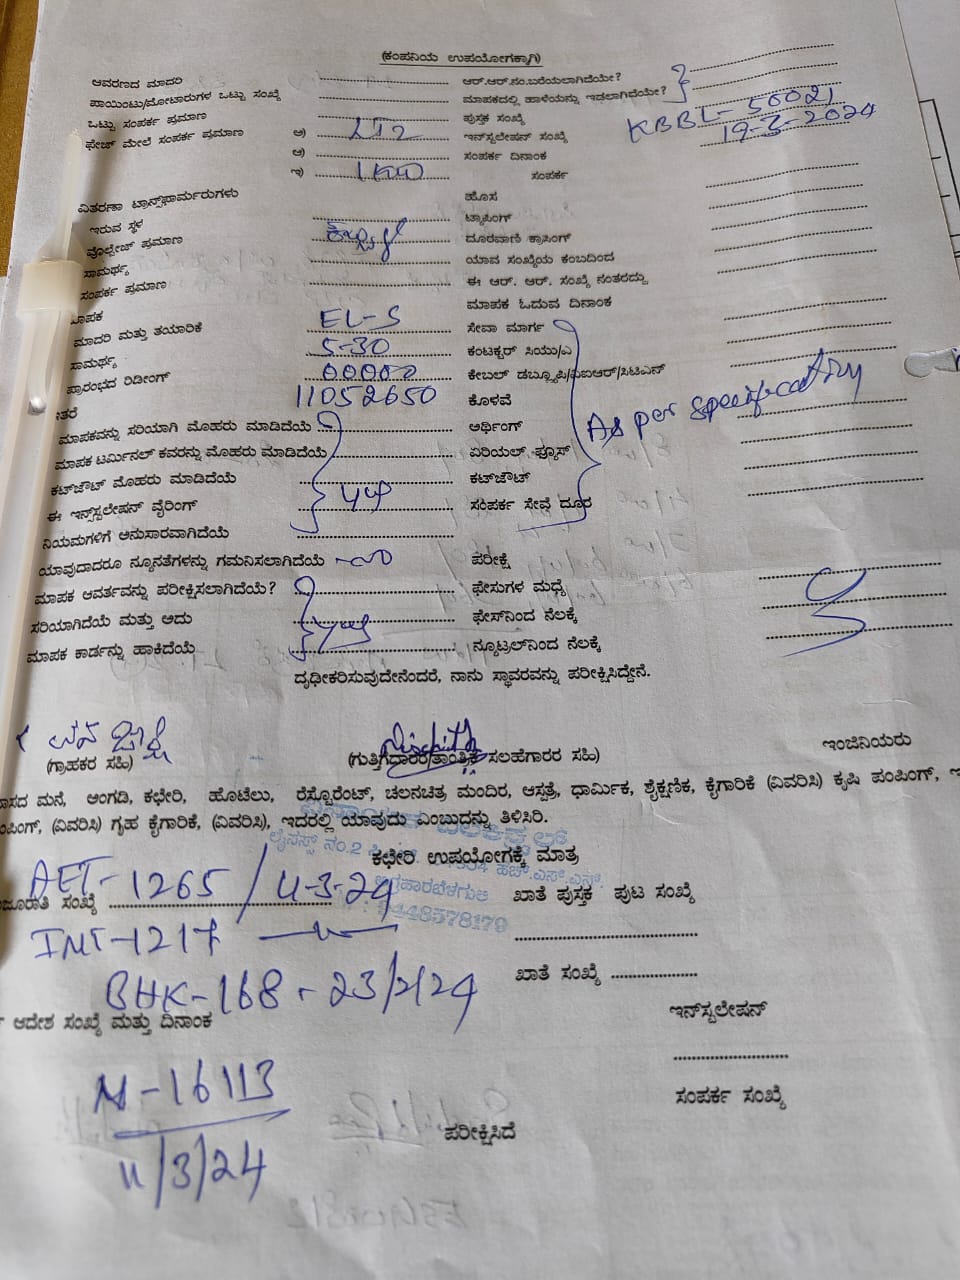 (ಕಂಪನಿಯ ಉಪಯೋಗಕ್ಕಾಗಿ)
ಆವರಣದ ಮಾದರಿ ಆರ್.ಆರ್.ನಂ.ಬರೆಯಲಾಗಿದೆಯೇ?
ಪಾಯಿಂಟು/ಮೋಟಾರುಗಳ ಒಟ್ಟು ಸಂಖ್ಯೆ ಮಾಪಕದಲ್ಲಿ ಹಾಳೆಯನ್ನು ಇಡಲಾಗಿದೆಯೇ?
ಒಟ್ಟು ಸಂಪರ್ಕ ಪ್ರಮಾಣ ಪುಸ್ತಕ ಸಂಖ್ಯೆ
ಫೇಜ್ ಮೇಲೆ ಸಂಪರ್ಕ ಪ್ರಮಾಣ ಅ) LT2 ಇನ್‌ಸ್ಟಲೇಷನ್ ಸಂಖ್ಯೆ KBBL-50021
ಆ) ಸಂಪರ್ಕ ದಿನಾಂಕ 19-3-2024
ಇ) 1KW ಸಂಪರ್ಕ
ವಿತರಣಾ ಟ್ರಾನ್ಸ್‌ಫಾರ್ಮರುಗಳು ಹೊಸ
ಇರುವ ಸ್ಥಳ ಟ್ಯಾಪಿಂಗ್
ವೊಲ್ಟೇಜ್ ಪ್ರಮಾಣ ದೂರವಾಣಿ ಕ್ರಾಸಿಂಗ್
ಸಾಮರ್ಥ್ಯ ಯಾವ ಸಂಖ್ಯೆಯ ಕಂಬದಿಂದ
ಸಂಪರ್ಕ ಪ್ರಮಾಣ ಈ ಆರ್. ಆರ್. ಸಂಖ್ಯೆ ನಂತರದ್ದು
ಮಾಪಕ ಮಾಪಕ ಓದುವ ದಿನಾಂಕ
ಮಾದರಿ ಮತ್ತು ತಯಾರಿಕೆ EL-S ಸೇವಾ ಮಾರ್ಗ
ಸಾಮರ್ಥ್ಯ 5-30 ಕಂಟಕ್ಟರ್ ಸಿಯು/ಎ
ಪ್ರಾರಂಭದ ರಿಡೀಂಗ್ 00000 ಕೇಬಲ್ ಡಬ್ಲ್ಯೂಪಿ/ವಿಐಆರ್/ಸಿಟಿಎಸ್
ಇತರೆ 11052650 ಕೊಳವೆ
ಮಾಪಕವನ್ನು ಸರಿಯಾಗಿ ಮೊಹರು ಮಾಡಿದೆಯೆ ಅರ್ಥಿಂಗ್ As per
ಮಾಪಕ ಟರ್ಮಿನಲ್ ಕವರನ್ನು ಮೊಹರು ಮಾಡಿದೆಯೆ ಏರಿಯಲ್ ಫ್ಯೂಸ್
ಕಟ್‌ಔಟ್ ಮೊಹರು ಮಾಡಿದೆಯೆ ಕಟ್‌ಔಟ್
ಈ ಇನ್ಸ್‌ಸ್ಟಲೇಷನ್ ವೈರಿಂಗ್ ಸಂಪರ್ಕ ಸೇವೆ ದೂರ
ನಿಯಮಗಳಿಗೆ ಅನುಸಾರವಾಗಿದೆಯೆ
ಯಾವುದಾದರೂ ನ್ಯೂನತೆಗಳನ್ನು ಗಮನಿಸಲಾಗಿದೆಯೆ ಪರೀಕ್ಷೆ
ಮಾಪಕ ಆವರ್ತವನ್ನು ಪರೀಕ್ಷಿಸಲಾಗಿದೆಯೆ? ಫೇಸುಗಳ ಮಧ್ಯೆ
ಸರಿಯಾಗಿದೆಯೆ ಮತ್ತು ಅದು ಫೇಸ್‌ನಿಂದ ನೆಲಕ್ಕೆ
ಮಾಪಕ ಕಾರ್ಡನ್ನು ಹಾಕಿದೆಯೆ ನ್ಯೂಟ್ರಲ್‌ನಿಂದ ನೆಲಕ್ಕೆ
ದೃಢೀಕರಿಸುವುದೇನೆಂದರೆ, ನಾನು ಸ್ಥಾವರವನ್ನು ಪರೀಕ್ಷಿಸಿದ್ದೇನೆ.
(ಗ್ರಾಹಕರ ಸಹಿ) (ಗುತ್ತಿಗೆದಾರರ/ತಾಂತ್ರಿಕ ಸಲಹೆಗಾರರ ಸಹಿ) ಇಂಜಿನಿಯರು
ಮನೆ, ಅಂಗಡಿ, ಕಛೇರಿ, ಹೊಟೆಲು, ರೆಸ್ಟೊರೆಂಟ್, ಚಲನಚಿತ್ರ ಮಂದಿರ, ಆಸ್ಪತ್ರೆ, ಧಾರ್ಮಿಕ, ಶೈಕ್ಷಣಿಕ, ಕೈಗಾರಿಕೆ (ವಿವರಿಸಿ) ಕೃಷಿ ಪಂಪಿಂಗ್,
(ವಿವರಿಸಿ) ಗೃಹ ಕೈಗಾರಿಕೆ, (ವಿವರಿಸಿ), ಇದರಲ್ಲಿ ಯಾವುದು ಎಂಬುದನ್ನು ತಿಳಿಸಿರಿ.
ಕಛೇರಿ ಉಪಯೋಗಕ್ಕೆ ಮಾತ್ರ
ಸಂಖ್ಯೆ AET-1265/11-3-24 ಖಾತೆ ಪುಸ್ತಕ ಪುಟ ಸಂಖ್ಯೆ
9448578179
INT-1217
BHK-168 - 23/2/24 ಖಾತೆ ಸಂಖ್ಯೆ
ಆದೇಶ ಸಂಖ್ಯೆ ಮತ್ತು ದಿನಾಂಕ ಇನ್‌ಸ್ಟಲೇಷನ್
M-16113 ಸಂಪರ್ಕ ಸಂಖ್ಯೆ
11/3/24 ಪರೀಕ್ಷಿಸಿದೆ